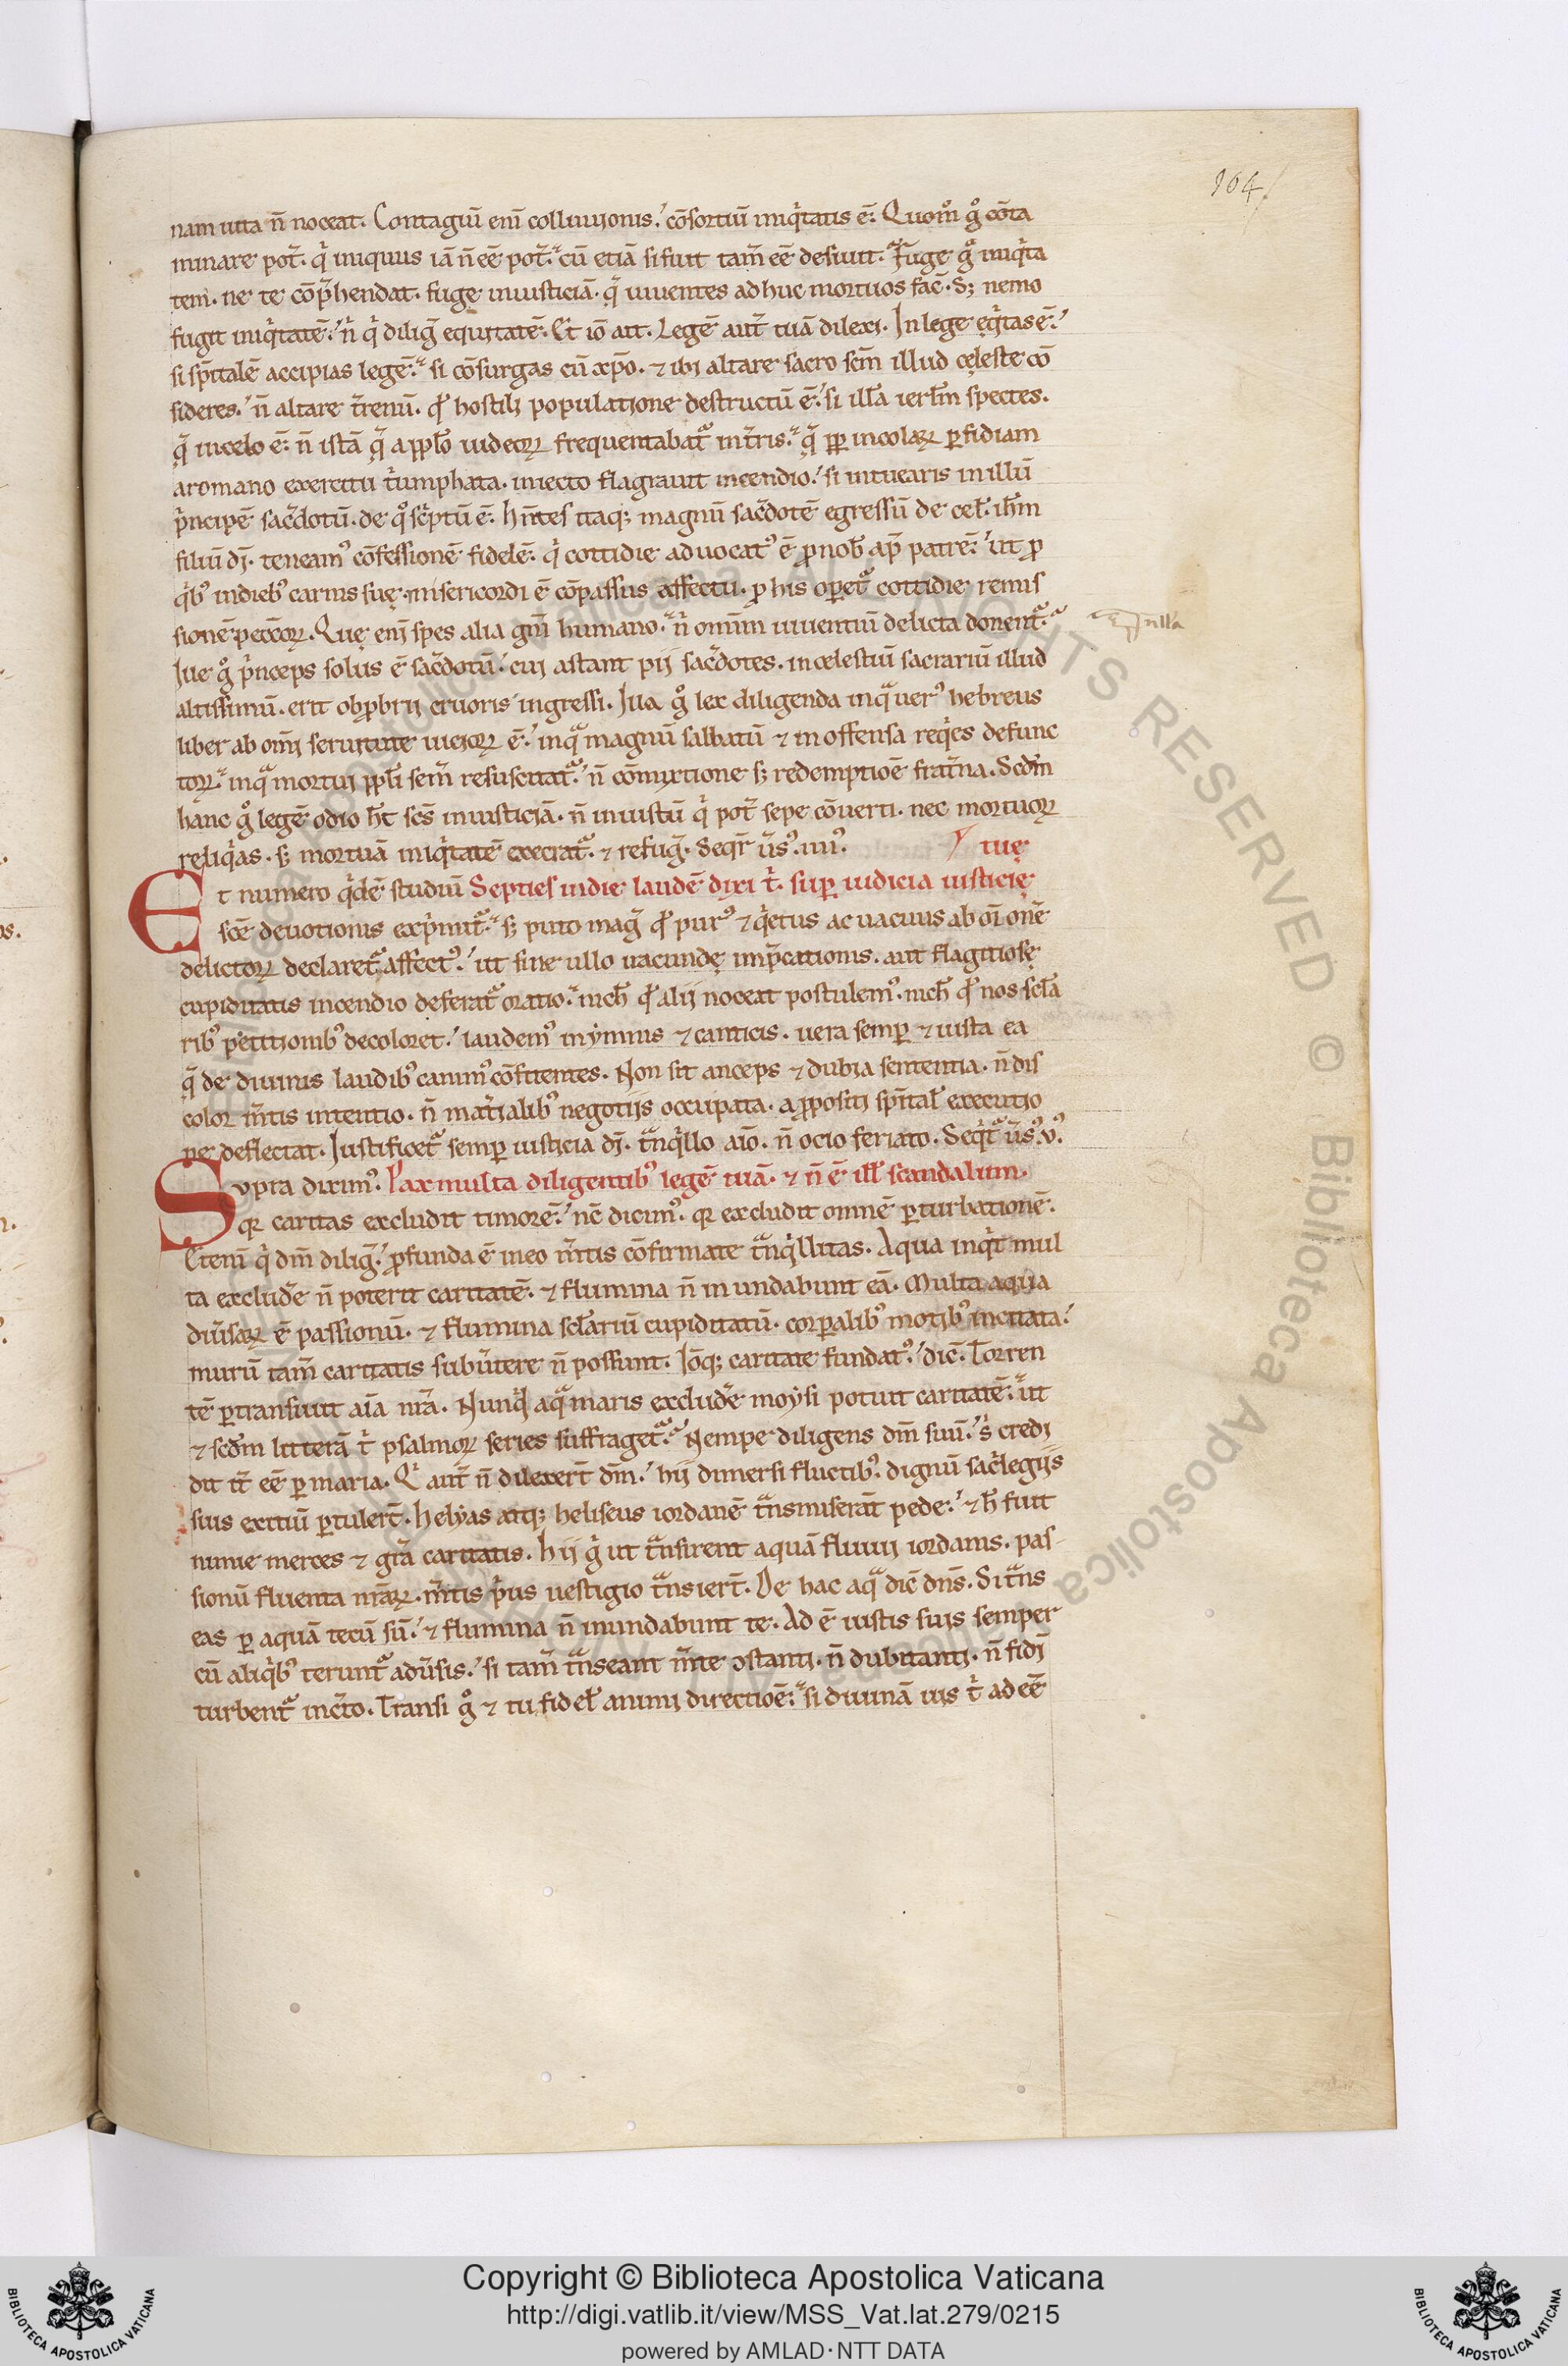 164
nam uita n̄ noceat. Contagiū enī colluuionis. cōsortiū iniq̇tatis ē. Quom̊ g̊ cōta
minare pot̄. q̇ iniquus iā n̄ eē pot̄. cū etiā si fuit tam̄ eē desiuit. Fuge g̊ iniq̇ta
tem. ne te cōp̄hendat. fuge iniusticiā. q̄ uiuentes adhuc mortuos fac̄. S; nemo
fugit iniq̇tatē. n̄ q̇ diliḡ equitatē. Et iō ait. Legē aut̄ tuā dilexi. In lege eq̇tas ē.
si sp̄italē accipias legē. si cōsurgas cū xp̄o. ⁊ ibi altare sacro scm̄ illud cęleste cō
sideres. n̄ altare t̄renū. qđ hostili populatione destructū ē. si illā ierłm spectes.
q̄ in celo ē. n̄ istā q̄ a ppło iudeoꝝ frequentabat᷑ in t̄ris. q̄ ꝓp incolaꝝ ꝑfidiam
a romano exercitu ṫumphata. iniecto flagrauit incendio. si intuearis in illū
ṗncipē sac̄dotū. de q̊ sċptū ē. hn̄tes itaq; magnū sac̄dotē egressū de cel̄. ih̄m
filiū dī. teneam᷒ cōfessionē fidelē. q̇ cottidie aduocat᷒ ē ꝓ nob̄ ap̄ patrē. ut ꝓ
q̇b᷒ in dieb᷒ carnis suę. misericordi ē cōpassus affectu. ꝓ his oꝑet᷑ cottidie remis
sionē peccoꝝ. Quę enī spes alia gn̄i humano. n̄ omīm uiuentiū delicta donent᷑.
nulla
Iue g̊ ṗnceps solus ē sac̄dotū. cui astant pii sac̄dotes. in celestiū sacrariū illud
altissimū. erit obꝓbrii cruoris ingressi. Iua g̊ lex diligenda in qua uer᷒ hebreus
liber ab om̄i seruitute uicioꝝ ē. in qua magnū sabbatū ⁊ inoffensa req̇es defunc
toꝝ. in qua mortui ppłi sem̄ resuscitat᷑. n̄ cōmixtione s; redemptioē frat̄na. Scđm
hanc g̊ legē odio h̄t scs̄ iniusticiā. n̄ iniustū q̇ pot̄ sepe cōuerti. nec mortuoꝝ
reliq̇as. s; mortuā iniq̇tatē execrat᷑. ⁊ refuḡ. Seqr̄ ūs᷒. iiii᷒. tuę
Et numero q̇dē studiū Septies in die laudē dixi ṫ. suꝑ iudicia iusticię
scē deuotionis exṗmit᷑. s; puto maġ qđ pur᷒ ⁊ q̇etus ac uacuus ab oī onē
delictoꝝ declaret᷑ affect᷒. ut sine ullo uacundę imp̄cationis. aut flagitiosę
cupiditatis incendio deferat᷑ oratio. nich̄ qđ alii noceat postulem᷒. nich̄ qđ nos scła
rib᷒ petitionib᷒ decoloret. laudem᷒ in ymnis ⁊ canticis. uera semꝑ ⁊ iusta ea
q̄ de diuinis laudib᷒ canim᷒ cōfitentes. Non sit anceps ⁊ dubia sententia. n̄ dis
color m̄tis intentio. n̄ mat̄ialib᷒ negotiis occupata. a ꝓpositi sp̄ital̄ executio
ne deflectat. Iustificet᷑ semꝑ iusticia dī. t᷑nq̇llo aīo. n̄ ocio feriato. Seq̇t᷑ ūs᷒. v᷒.
Supra dixim᷒. Pax multa diligentib᷒ legē tuā. ⁊ n̄ ē ill̄ scandalum.
qꝛ caritas excludit timorē. nc̄ dicim᷒. qꝛ excludit omnē ꝑturbationē.
Etenī q̇ dm̄ diliḡ. ꝓfunda ē in eo m̄tis cōfirmate t᷑nq̇llitas. Aqua inq̇t mul
ta excluđe n̄ poterit caritatē. ⁊ flumina n̄ inundabunt eā. Multa aqua
diūsaꝝ ē passionū. ⁊ flumina sclāriū cupiditatū. corꝑalib᷒ motib᷒ incitata.
murū tam̄ caritatis subūtere n̄ possunt. Iōq; caritate fundat᷒. dic̄. Torren
tē ꝑtransiuit aīa nrā. Nunq̄d aqua maris excluđe moysi potuit caritatē. ut
⁊ scđm litterā ṫ psalmoꝝ series suffraget᷑. Nempe diligens dm̄ suū. s̄ credi
dit it̄ eē ꝑ maria. Q̇ aut̄ n̄ dilexert̄ dm̄. hii dimersi fluctib᷒. dignū sac̄legiis
suis exitiū ꝑtulert̄. helyas atq; heliseus iordanē t᷑nsmiserāt pede. ⁊ h̄ fuit
nunc merces ⁊ gr̄a caritatis. Hii g̊ ut t᷑nsirent aquā fluuii iordanis. pas-
sionū fluenta nr̄aꝝ. m̄tis ṗus uestigio t᷑nsiert̄. De hac aqua dic̄ dn̄s. Si t᷑ns
eas ꝑ aquā tecū sū. ⁊ flumina n̄ inundabunt te. Ad ē iustis suis semper
cū aliq̇b᷒ terunt᷑ adūsis. si tam̄ t᷑nseant m̄te ɔstanti. n̄ dubitanti. n̄ fidī
turbent᷑ inc̄to. Transi g̊ ⁊ tu fidel̄ animi directioē. si diuinā uis ṫ adeē
Copyright © Biblioteca Apostolica Vaticana
http://digi.vatlib.it/view/MSS_Vat.lat.279/0215
powered by AMLAD·NTT DATA